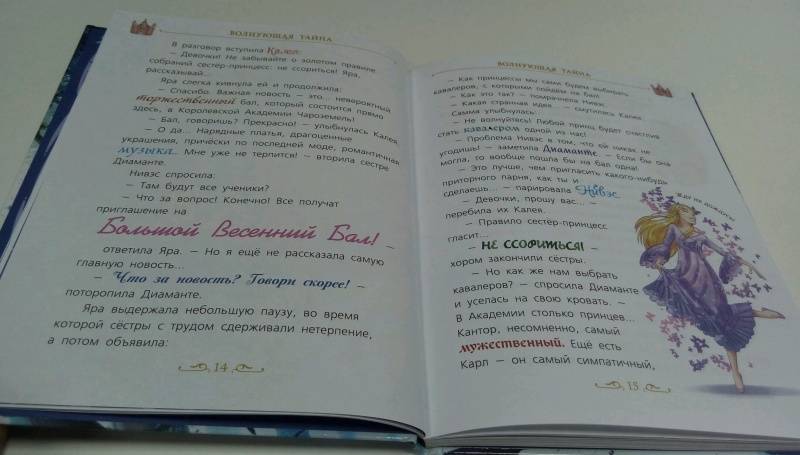 ВОЛНУЮЩАЯ ТАЙНА
В разговор вступила Калея:
– Девочки! Не забывайте о золотом правиле
собраний сестёр-принцесс: не ссориться! Яра,
рассказывай...
Яра слегка кивнула ей и продолжила:
– Спасибо. Важная новость – это... невероятный
торжественный бал, который состоится прямо
здесь, в Королевской Академии Чароземель!
– Бал, говоришь? Прекрасно! – улыбнулась Калея.
– О да... Нарядные платья, драгоценные
украшения, причёски по последней моде, романтичная
музыка... Мне уже не терпится! – вторила сестре
Диаманте.
Нивэс спросила:
– Там будут все ученики?
– Что за вопрос! Конечно! Все получат
приглашение на
Большой Весенний Бал! –
ответила Яра. – Но я ещё не рассказала самую
главную новость...
– Что за новость? Говори скорее! –
поторопила Диаманте.
Яра выдержала небольшую паузу, во время
которой сёстры с трудом сдерживали нетерпение,
а потом объявила:
14
ВОЛНУЮЩАЯ ТАЙНА
– Как принцессы мы сами будем выбирать
кавалеров, с которыми пойдём на бал.
– Как это так? – помрачнела Нивэс.
– Какая странная идея... – смутилась Калея.
Самма улыбнулась:
– Не волнуйтесь! Любой принц будет счастлив
стать кавалером одной из нас!
– Проблема Нивэс в том, что ей никак не
угодишь! – заметила Диаманте. – Если бы она
могла, то вообще пошла бы на бал одна!
– Это лучше, чем пригласить какого-нибудь
приторного парня, как ты и
сделаешь... – парировала Нивэс.
– Девочки, прошу вас... –
перебила их Калея.
– Правило сестёр-принцесс
гласит...
– НЕ ССОРИТЬСЯ! –
хором закончили сёстры.
– Но как же нам выбрать
кавалеров? – спросила Диаманте
и уселась на свою кровать. –
В Академии столько принцев...
Кантор, несомненно, самый
мужественный. Ещё есть
Карл – он самый симпатичный,
Жду не дождусь!
15